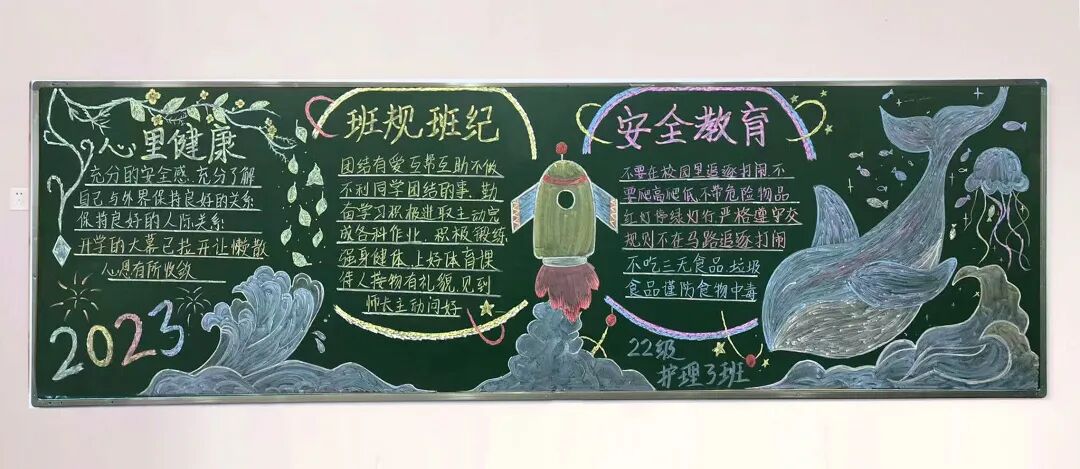 心里健康
充分的安全感,充分了解
自己与外界保持良好的关系
保持良好的人际关系
开学的大幕已拉开让懒散
心思有所收敛
2023
班规班纪
团结有爱互帮互助不做
不利同学团结的事.勤
奋学习积极进取主动完
成各科作业.积极锻练
强身健体上好体育课
待人接物有礼貌,见到
师长主动问好
安全教育
不要在校园里追逐打闹不
要爬高爬低.不带危险物品
红灯停绿灯行,严格遵守交
规则不在马路追逐打闹
不吃三无食品.垃圾
食品谨防食物中毒
22级
护理3班